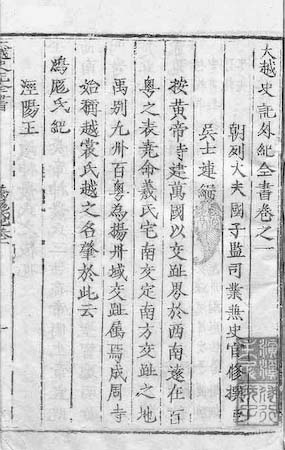 大越史記外紀全書卷之一
朝列大夫國子監司業兼史官修撰臣
吳士連編
按黃帝時建萬國以交趾界於西南遠在百
粵之表堯命羲氏宅南交定南方交趾之地
禹别九州百粵為揚州域交趾属焉成周時
始稱越裳氏越之名肇於此云
鴻厖氏紀
涇陽王